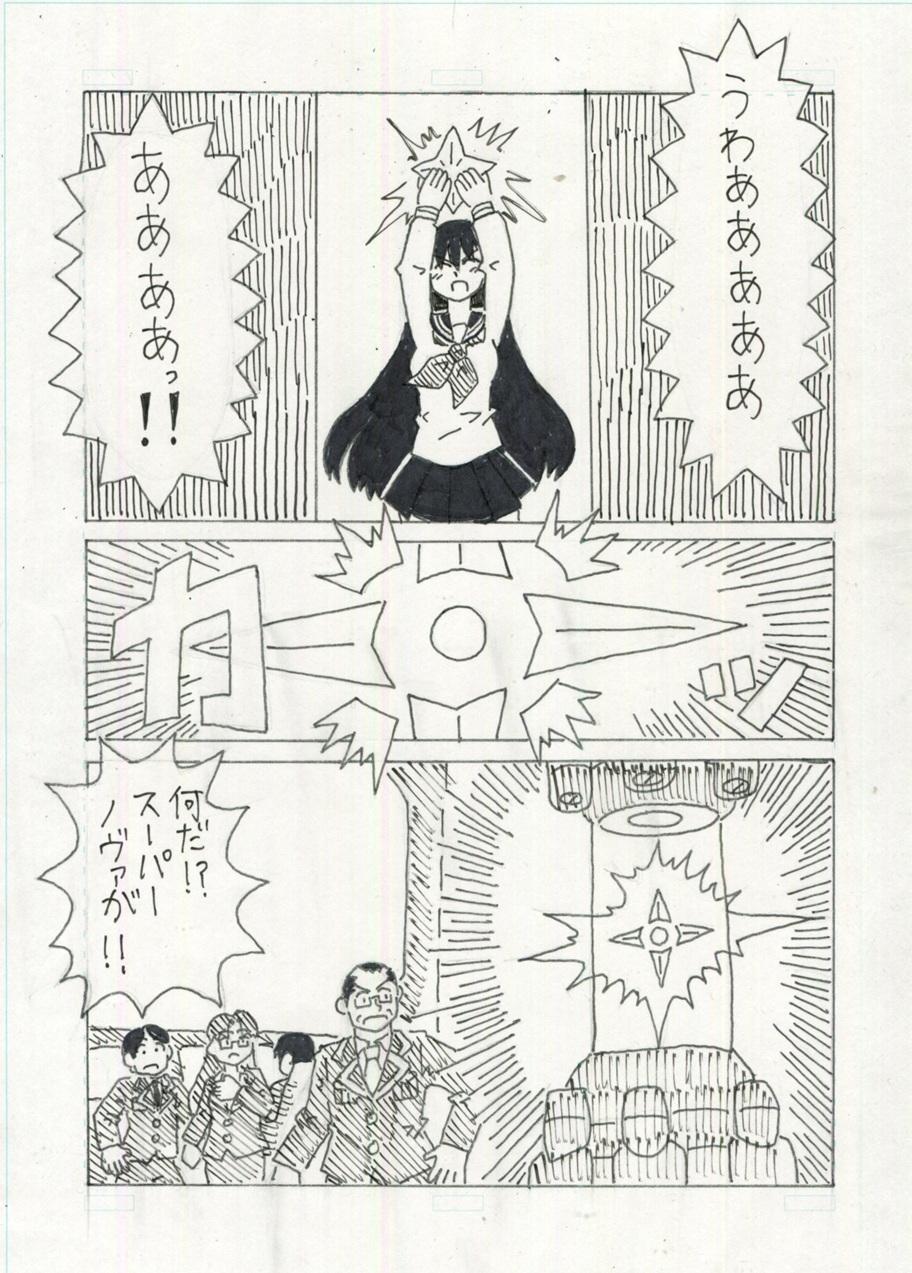 うわああああああ
ああああっ!!
カッ
何だ!?
スーパー
ノヴァが!!